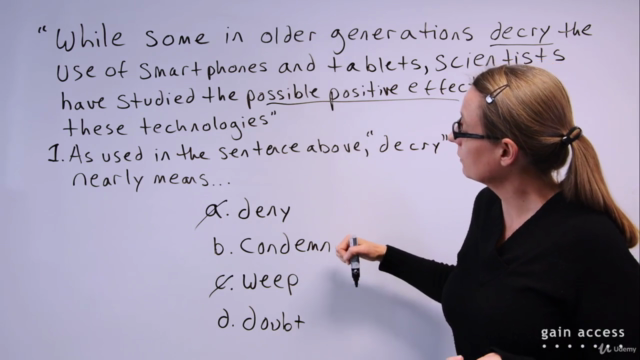 "While some in older generations decry the
use of smartphones and tablets, scientists
have studied the possible positive effec
these technologies"
1. As used in the sentence above, "decry"
nearly means...
a. deny
b. condemn
c. weep
d. doubt
gain access
Udemy